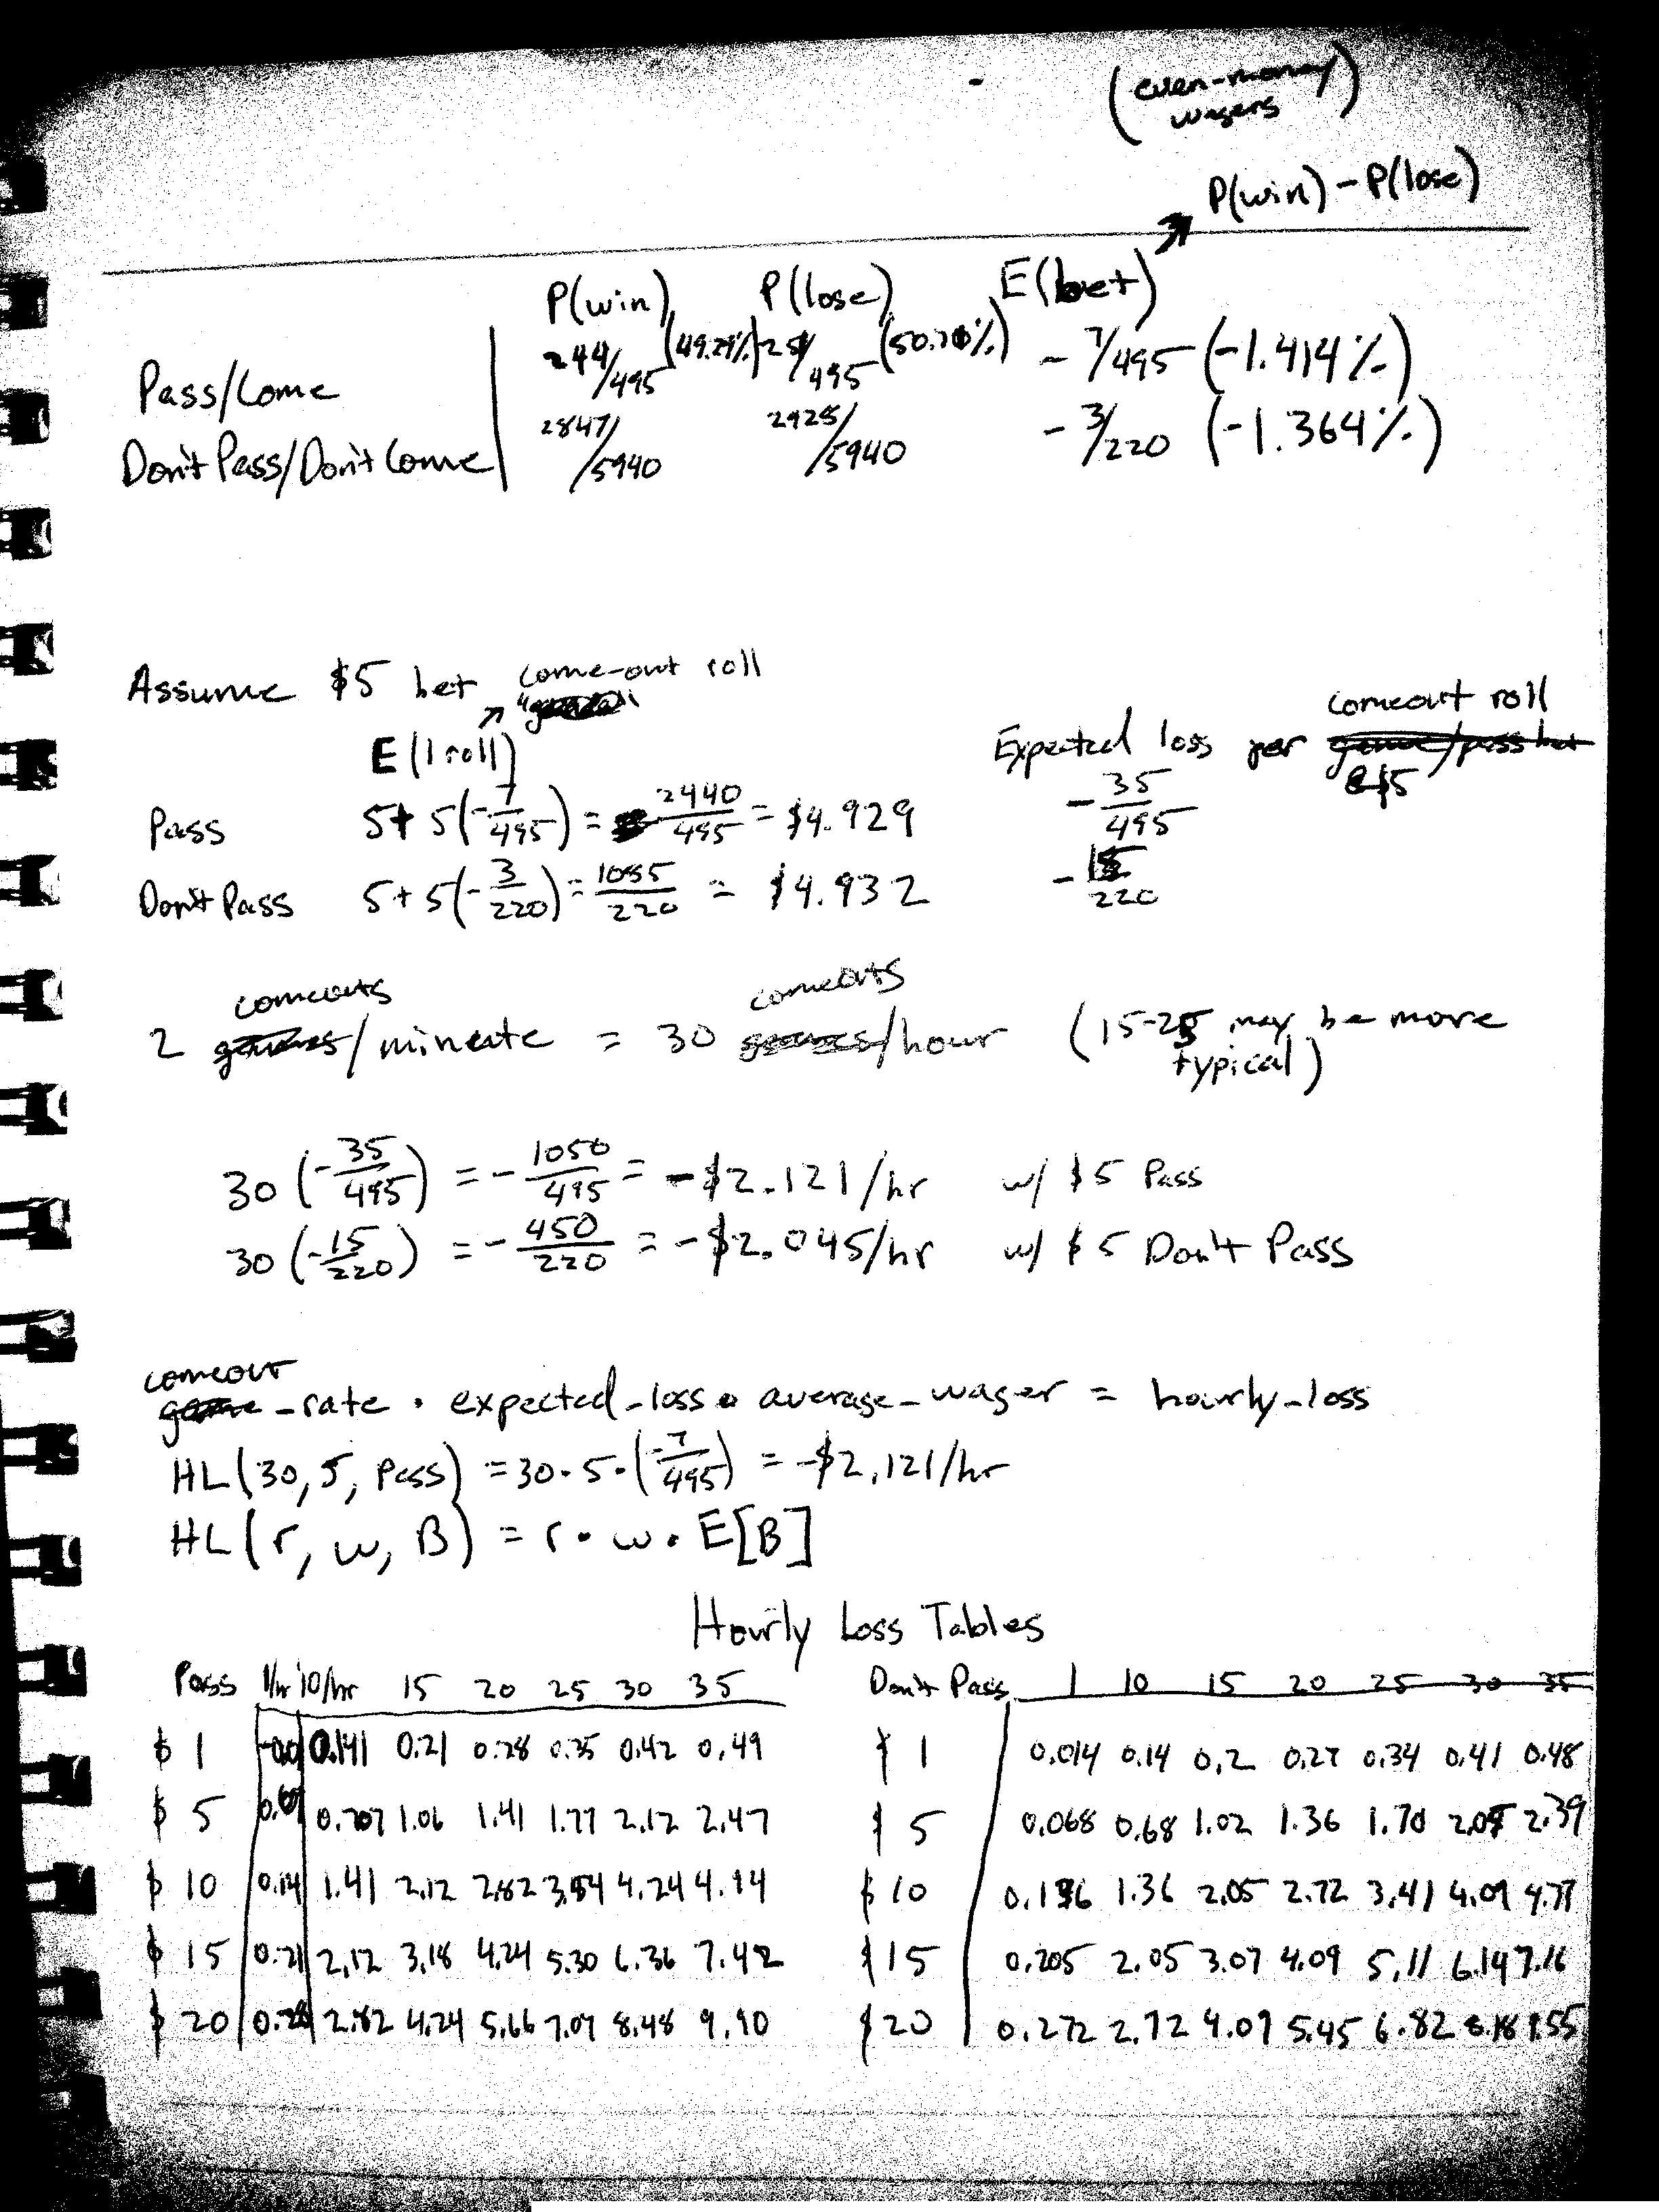 (even-money
wagers)
P(win) - P(lose)
P(win) P(lose) E(bet)
Pass/Come 244/495 (49.29%) 251/495 (50.70%) - 7/495 (-1.414%)
Don't Pass/Don't Come 2847/5940 2928/5940 - 3/220 (-1.364%)
Assume $5 bet come-out roll
E(1 roll)
Expected loss per comeout roll
@$5
Pass 5+5(-7/495) = 2440/495 = $4.929 -35/495
Don't Pass 5+5(-3/220) = 1085/220 = $4.932 -15/220
comeouts comeouts
2 games/mineate = 30 games/hour (15-25 may be more
typical)
30(-35/495) = -1050/495 = -$2.121/hr w/ $5 Pass
30(-15/220) = -450/220 = -$2.045/hr w/ $5 Don't Pass
comeout
game-rate · expected-loss · average-wager = hourly-loss
HL(30, 5, Pass) = 30·5·(-7/495) = -$2.121/hr
HL(r, w, B) = r·w·E[B]
Hourly Loss Tables
Pass 1/hr 10/hr 15 20 25 30 35
$1 0.141 0.21 0.28 0.35 0.42 0.49
$5 0.707 1.06 1.41 1.77 2.12 2.47
$10 0.14 1.41 2.12 2.82 3.54 4.24 4.94
$15 0.21 2.12 3.18 4.24 5.30 6.36 7.42
$20 0.28 2.82 4.24 5.66 7.07 8.48 9.90
Don't Pass 1 10 15 20 25 30 35
$1 0.014 0.14 0.2 0.27 0.34 0.41 0.48
$5 0.068 0.68 1.02 1.36 1.70 2.05 2.39
$10 0.136 1.36 2.05 2.72 3.41 4.09 4.77
$15 0.205 2.05 3.07 4.09 5.11 6.14 7.16
$20 0.272 2.72 4.09 5.45 6.82 8.18 9.55